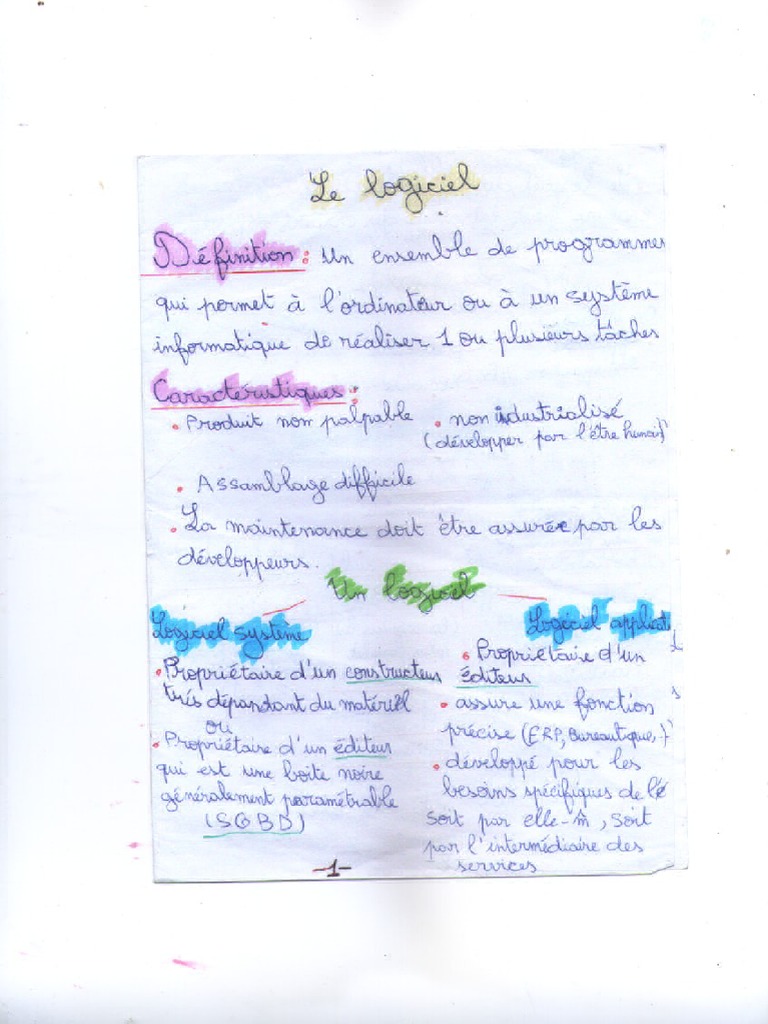 Le logiciel
Définition : Un ensemble de programmes
qui permet à l'ordinateur ou à un système
informatique de réaliser 1 ou plusieurs tâches
Caractéristiques :
• Produit non palpable
• non industrialisé
(développer par l'être humain)
• Assamblage difficile
• La maintenance doit être assurée par les
développeurs.
Un logiciel
Logiciel système
• Propriétaire d'un constructeur
très dépendant du matériel
ou
• Propriétaire d'un éditeur
qui est une boite noire
généralement paramétrable
(SGBD)
Logiciel applicat
• Propriétaire d'un
éditeur
• assure une fonction
précise (ERP, Bureautique,
• développé pour les
besoins spécifiques de
soit par elle-m̂, soit
par l'intermédiaire des
services
-1-